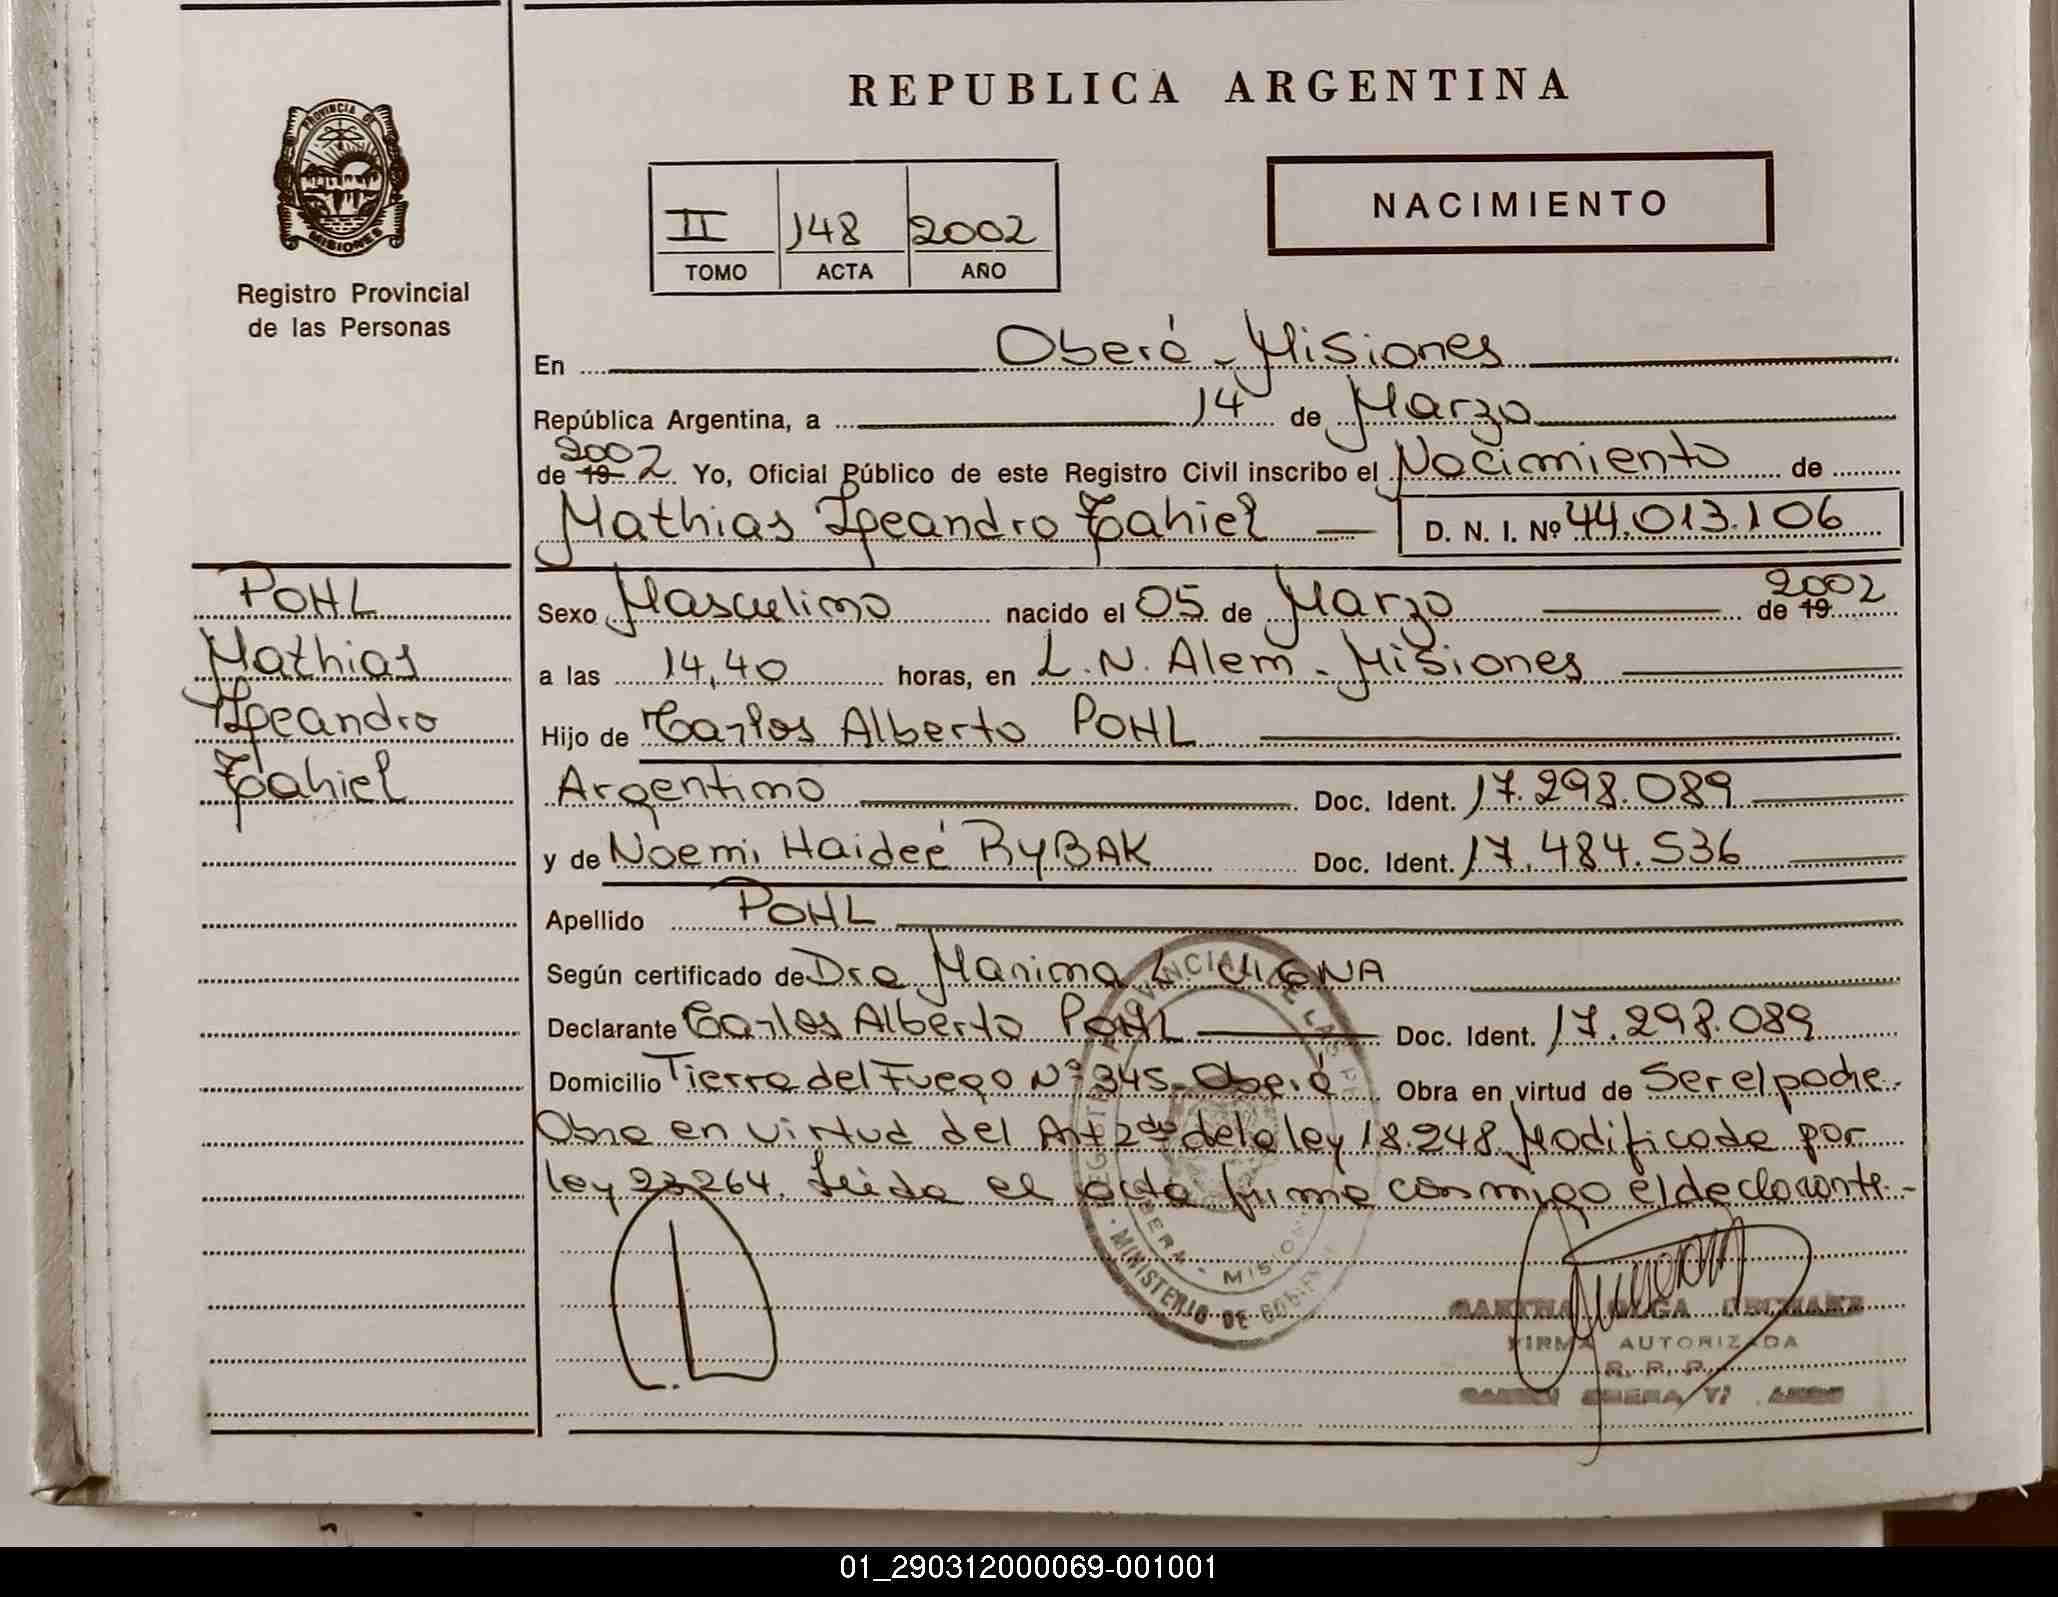 REPUBLICA ARGENTINA
PROVINCIA DE
MISIONES
Registro Provincial
de las Personas
II 148 2002
TOMO ACTA AÑO
NACIMIENTO
En Oberá - Misiones
República Argentina, a 14 de Marzo
de 19 2002 Yo, Oficial Público de este Registro Civil inscribo el Nacimiento de
Mathias Leandro Tahiel — D. N. I. Nº 44.013.106
POHL
Mathias
Leandro
Tahiel
Sexo Masculino nacido el 05 de Marzo de 19 2002
a las 14,40 horas, en L. N. Alem - Misiones
Hijo de Carlos Alberto POHL
Argentino Doc. Ident. 17.298.089
y de Noemi Haideé RYBAK Doc. Ident. 17.484.536
Apellido POHL
Según certificado de Dra Marina L VIGNA
Declarante Carlos Alberto POHL Doc. Ident. 17.298.089
Domicilio Tierra del Fuego Nº 345 - Oberá Obra en virtud de Ser el padre.
Obra en virtud del Art 2do de la ley 18.248 Modificada por
ley 23264. Leida el acta firma conmigo el declarante.-
MINISTERIO DE GOBIERNO
MISIONES
OLGA
FIRMA AUTORIZADA
R. P. P.
01_290312000069-001001